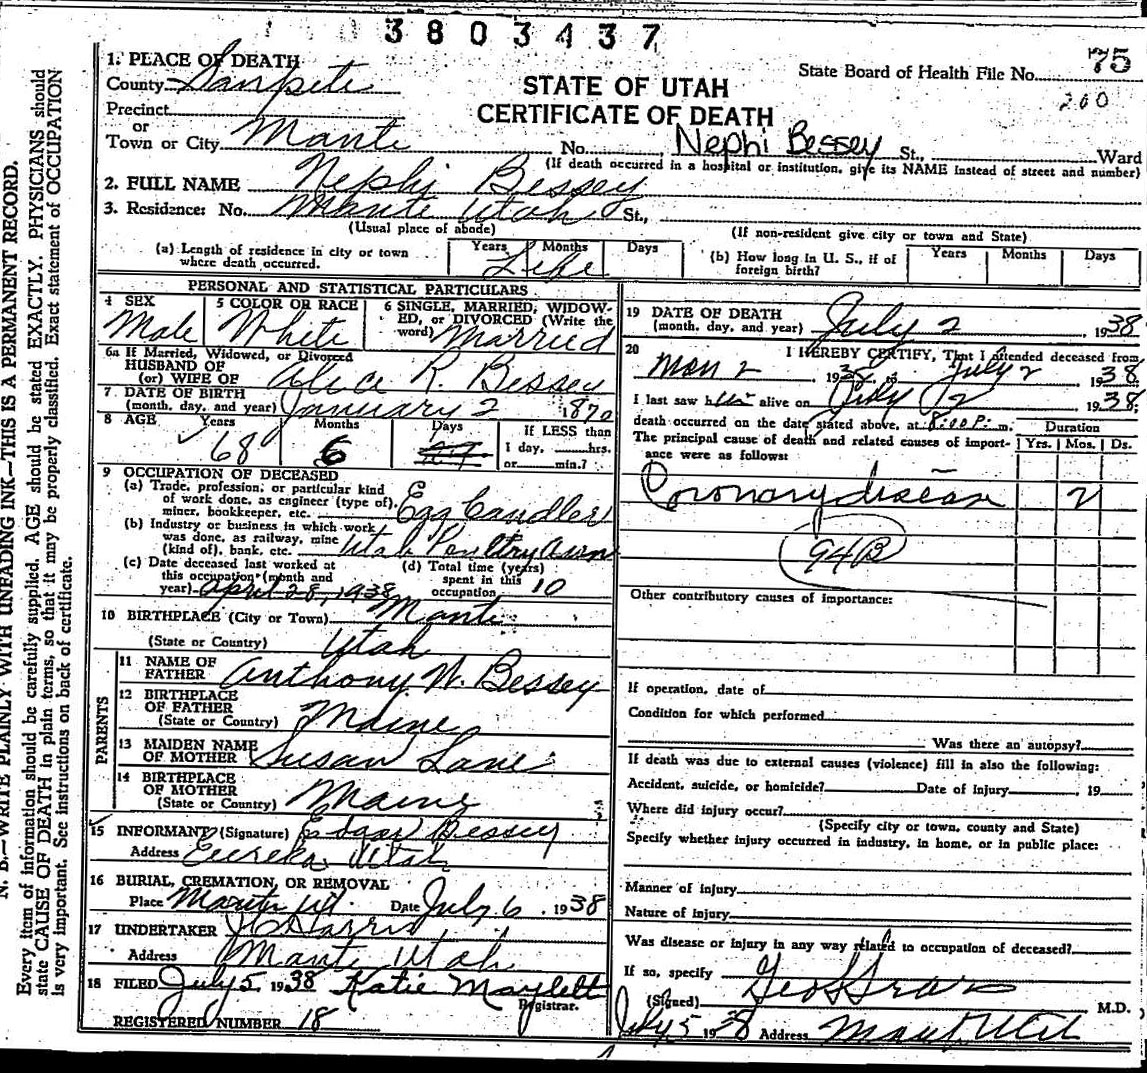 3803437
1. PLACE OF DEATH
County Sanpete
Precinct
or
Town or City Manti
STATE OF UTAH
CERTIFICATE OF DEATH
State Board of Health File No. 75
200
No. Nephi Bessey St., Ward
(If death occurred in a hospital or institution, give its NAME instead of street and number)
2. FULL NAME Nephi Bessey
3. Residence: No. Manti Utah St.,
(Usual place of abode) (If non-resident give city or town and State)
(a) Length of residence in city or town where death occurred. Years Months Days Life
(b) How long in U. S., if of foreign birth? Years Months Days
PERSONAL AND STATISTICAL PARTICULARS
4 SEX Male
5 COLOR OR RACE White
6 SINGLE, MARRIED, WIDOW-
ED, or DIVORCED (Write the
word) Married
6a If Married, Widowed, or Divorced
HUSBAND OF
(or) WIFE OF Alice R. Bessey
7 DATE OF BIRTH
(month, day, and year) January 2 1870
8 AGE Years 68 Months 6 Days
If LESS than
1 day, hrs.
or min.?
9 OCCUPATION OF DECEASED
(a) Trade, profession, or particular kind
of work done, as engineer (type of),
miner, bookkeeper, etc. Egg Candler
(b) Industry or business in which work
was done, as railway, mine
(kind of), bank, etc. Utah Poultry Assn
(c) Date deceased last worked at
this occupation (month and
year) April 28, 1938
(d) Total time (years)
spent in this
occupation 10
10 BIRTHPLACE (City or Town) Manti
(State or Country) Utah
PARENTS
11 NAME OF
FATHER Anthony W. Bessey
12 BIRTHPLACE
OF FATHER
(State or Country) Maine
13 MAIDEN NAME
OF MOTHER Susan Lane
14 BIRTHPLACE
OF MOTHER
(State or Country) Maine
15 INFORMANT (Signature) Edgar Bessey
Address Eureka Utah
16 BURIAL, CREMATION, OR REMOVAL
Place Manti Ut. Date July 6, 1938
17 UNDERTAKER Harris
Address Manti Utah
18 FILED July 5, 1938 Katie Maylett
Registrar.
REGISTERED NUMBER 18
19 DATE OF DEATH
(month, day, and year) July 2 1938
20 I HEREBY CERTIFY, That I attended deceased from
2 1938 to July 2 1938
I last saw him alive on July 2 1938
death occurred on the date stated above, at 8:00 P. m.
The principal cause of death and related causes of import-
ance were as follows:
Duration
Yrs. Mos. Ds.
Coronary disease 2
94B
Other contributory causes of importance:
If operation, date of
Condition for which performed
Was there an autopsy?
If death was due to external causes (violence) fill in also the following:
Accident, suicide, or homicide? Date of injury 19
Where did injury occur?
(Specify city or town, county and State)
Specify whether injury occurred in industry, in home, or in public place:
Manner of injury
Nature of injury
Was disease or injury in any way related to occupation of deceased?
If so, specify
(Signed) M.D.
July 5 1938 Address Manti Utah
N. B.—WRITE PLAINLY WITH UNFADING INK—THIS IS A PERMANENT RECORD.
Every item of information should be carefully supplied. AGE should be stated EXACTLY. PHYSICIANS should
state CAUSE OF DEATH in plain terms, so that it may be properly classified. Exact statement of OCCUPATION
is very important. See instructions on back of certificate.